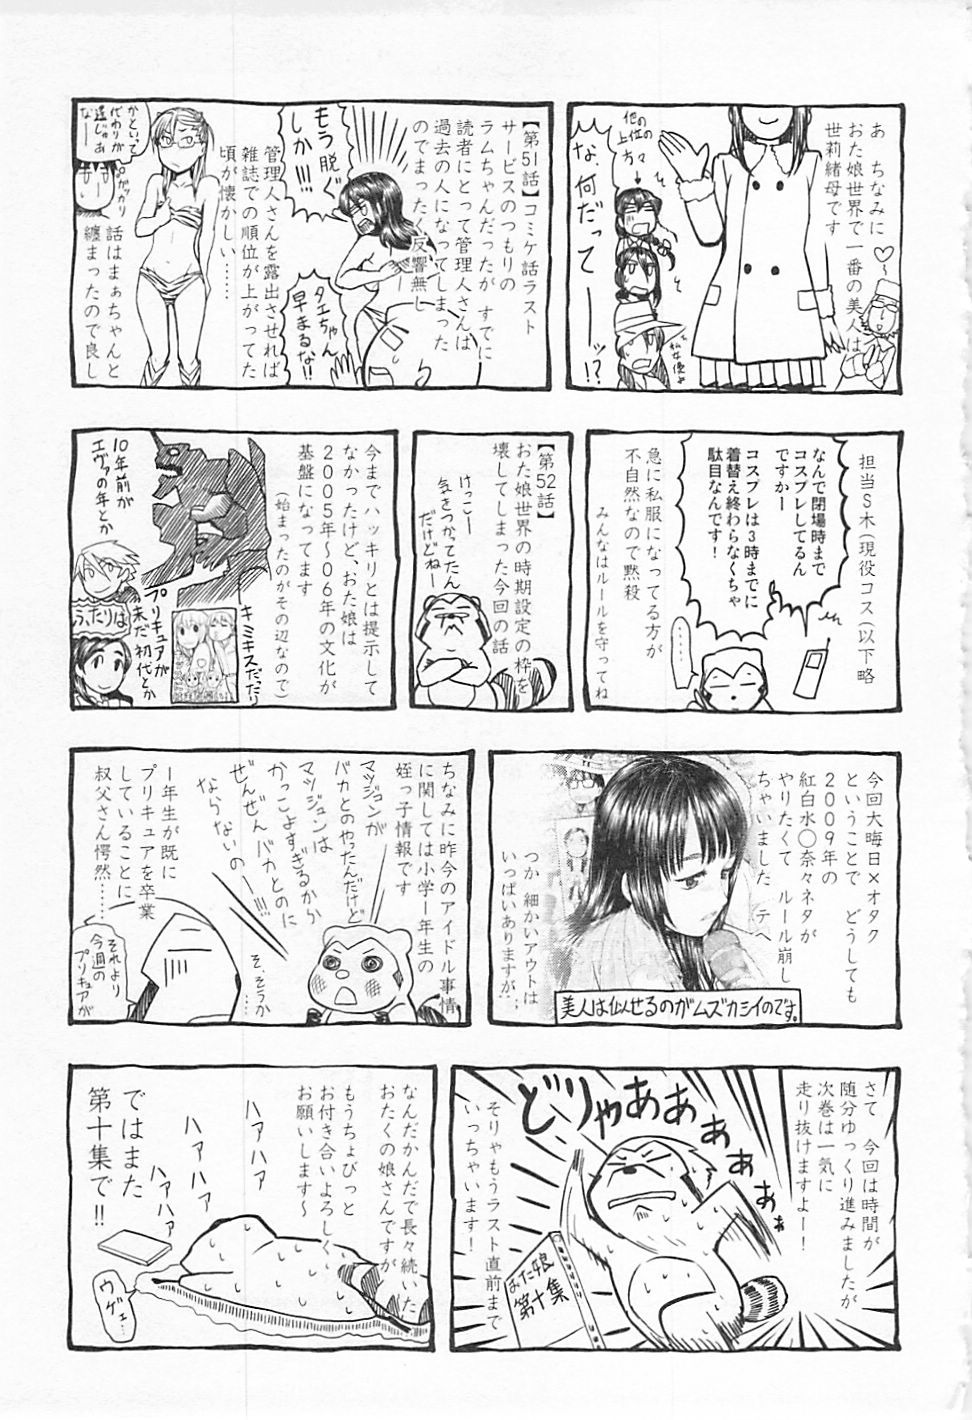 あ　ちなみに
おた娘世界で一番の美人は
世莉緒母です
♡〜
他の
上位の
方々
な、何だって
ーーッ!?
私女優よ
【第51話】コミケ話ラスト
サービスのつもりの
ラムちゃんだったが　すでに
読者にとって管理人さんは
過去の人になってしまった
のでまったく反響無し
もう脱ぐ
しか!!!
タエちゃん
早まるな!!
管理人さんを露出させれば
雑誌での順位が上がってた
頃が懐かしい……
かといって
代わりが
遥じゃあ
なー
ガッカリ
話はまぁちゃんと
纏まったので良し
担当S木(現役コス(以下略
なんで閉場時まで
コスプレしてるん
ですかー
コスプレは3時までに
着替え終わらなくちゃ
駄目なんです!
急に私服になってる方が
不自然なので黙殺
みんなはルールを守ってね
……
【第52話】
おた娘世界の時期設定の枠を
壊してしまった今回の話
けっこー
気をつかってたん
だけどねー
今までハッキリとは提示して
なかったけど、おた娘は
2005年〜06年の文化が
基盤になってます
(始まったのがその辺なので)
10年前が
エヴァの年とか
キミキスだったり
プリキュアが
未だ初代とか
ふたりは
今回大晦日×オタク
ということで　どうしても
2009年の
紅白水〇奈々ネタが
やりたくて　ルール崩し
ちゃいました　テヘ
つか　細かいアウトは
いっぱいありますが…
美人は似せるのがムズカシイのです。
ちなみに昨今のアイドル事情
に関しては小学1年生の
姪っ子情報です
マツジュンが
バカとのやったんだけど
マツジュンは
かっこよすぎるから
ぜんぜんバカとのに
ならないのー!!
そ、そうか
1年生が既に
プリキュアを卒業
していることに
叔父さん愕然……
それより
今週の
プリキュアが
さて　今回は時間が
随分ゆっくり進みましたが
次巻は一気に
走り抜けますよー!
どりゃあああぁぁぁ
そりゃもうラスト直前まで
いっちゃいます!
おた娘
第十集
なんだかんだで長々続いた
おたくの娘さんですが
もうちょびっと
お付き合いよろしく
お願いします〜
ハァハァ
ハァハァ
ハァハァ
ではまた
第十集で!!
ウゲェ…